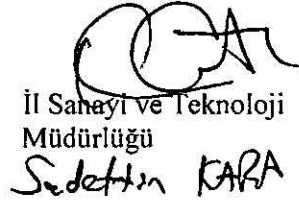 İl Sanayi ve Teknoloji
Müdürlüğü
Sadettin KARA